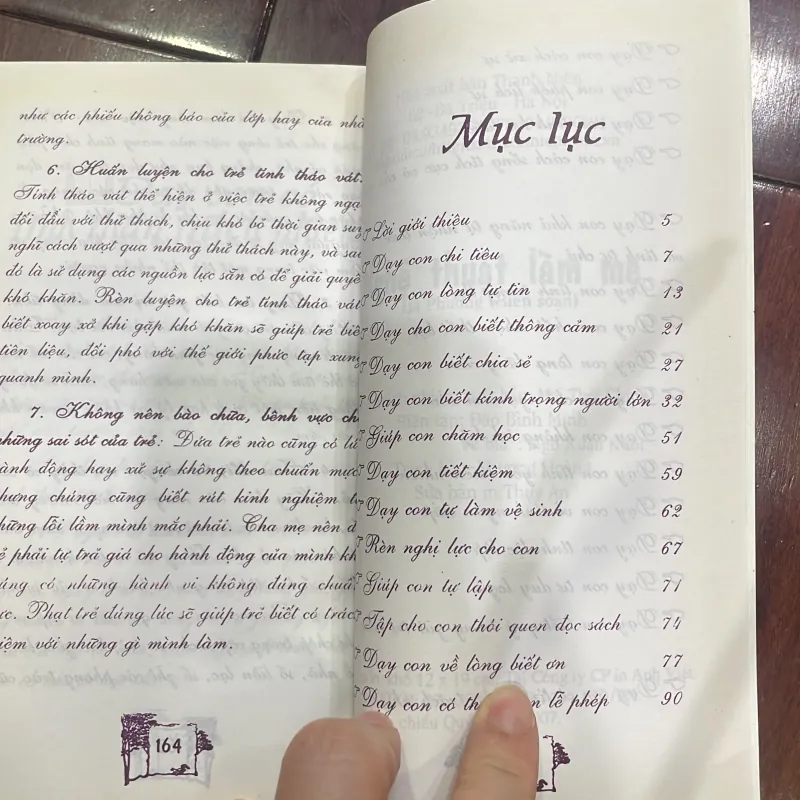 như các phiếu thông báo của lớp hay của nhà
trường.
6. Huấn luyện cho trẻ tính tháo vát.
Tính tháo vát thể hiện ở việc trẻ không ngạ
đối đầu với thử thách, chịu khó bỏ thời gian suy
nghĩ cách vượt qua những thử thách này, và sau
đó là sử dụng các nguồn lực sẵn có để giải quyế
khó khăn. Rèn luyện cho trẻ tính tháo vát
biết xoay xở khi gặp khó khăn sẽ giúp trẻ biế
tiên liệu, đối phó với thế giới phức tạp xung
quanh mình.
7. Không nên bào chữa, bênh vực ch
những sai sót của trẻ: Đứa trẻ nào cũng có lú
hành động hay xử sự không theo chuẩn mực
nhưng chúng cũng biết rút kinh nghiệm
những lỗi lầm mình mắc phải. Cha mẹ nên
phải tự trả giá cho hành động của mình kh
có những hành vi không đúng chuẩ
ực. Phạt trẻ đúng lúc sẽ giúp trẻ biết có trác
iệm với những gì mình làm.
164
Mục lục
Lời giới thiệu 5
Dạy con chi tiêu 7
Dạy con lòng tự tin 13
Dạy cho con biết thông cảm 21
Dạy con biết chia sẻ 27
Dạy con biết kính trọng người lớn 32
Giúp con chăm học 51
Dạy con tiết kiệm 59
Dạy con tự làm vệ sinh 62
Rèn nghị lực cho con 67
Giúp con tự lập 71
Tập cho con thói quen đọc sách 74
Dạy con về lòng biết ơn 77
Dạy con có lễ phép 90